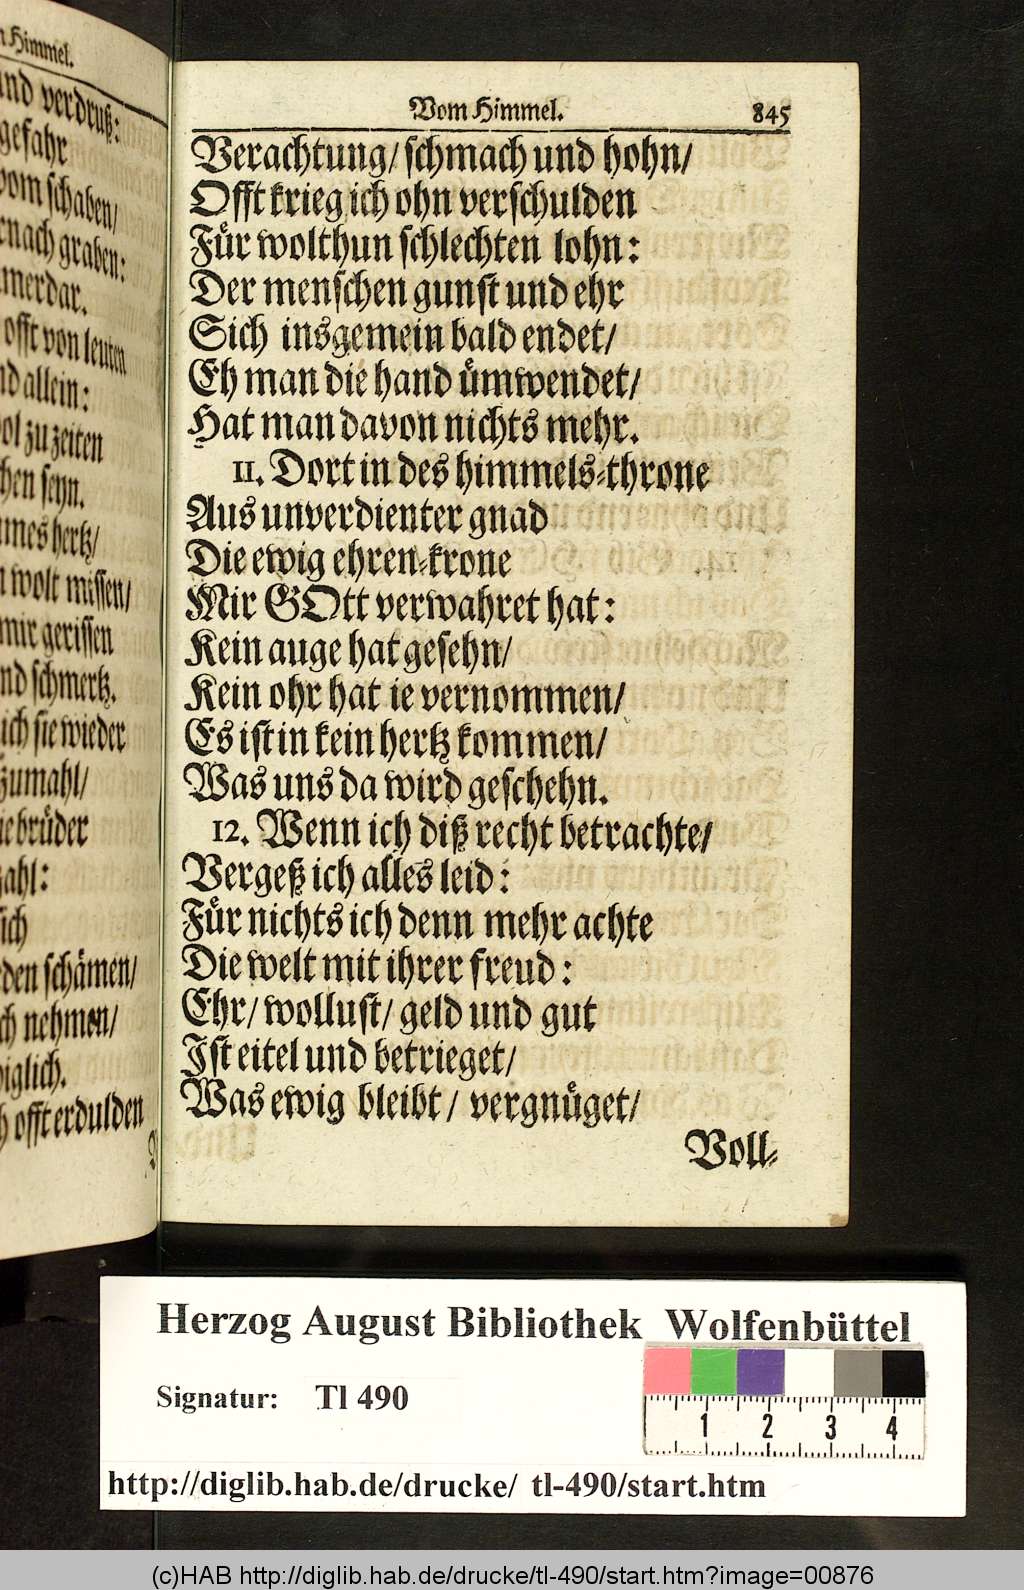 Himmel.
und verdruß:
gefahr
vom schaben/
nach graben:
merdar.
offt von leuten
allein:
zu zeiten
seyn.
hertz/
wolt missen/
mir gerissen
und schmertz.
ich sie wieder
zumahl/
brüder
schämen/
nehmen/
offt erdulden
Vom Himmel. 845
Verachtung/ schmach und hohn/
Offt krieg ich ohn verschulden
Für wolthun schlechten lohn:
Der menschen gunst und ehr
Sich insgemein bald endet/
Eh man die hand ümwendet/
Hat man davon nichts mehr.
11. Dort in des himmels-throne
Aus unverdienter gnad
Die ewig ehren-krone
Mir GOtt verwahret hat:
Kein auge hat gesehn/
Kein ohr hat ie vernommen/
Es ist in kein hertz kommen/
Was uns da wird geschehn.
12. Wenn ich diß recht betrachte/
Vergeß ich alles leid:
Für nichts ich denn mehr achte
Die welt mit ihrer freud:
Ehr/ wollust/ geld und gut
Ist eitel und betrieget/
Was ewig bleibt/ vergnüget/
Voll-
Herzog August Bibliothek Wolfenbüttel
Signatur: Tl 490
1 2 3 4
http://diglib.hab.de/drucke/ tl-490/start.htm
(c)HAB http://diglib.hab.de/drucke/tl-490/start.htm?image=00876